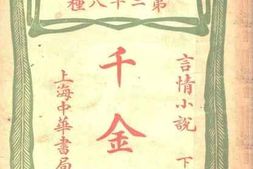 第二十八種
言情小說 下
千金
上海中華書局